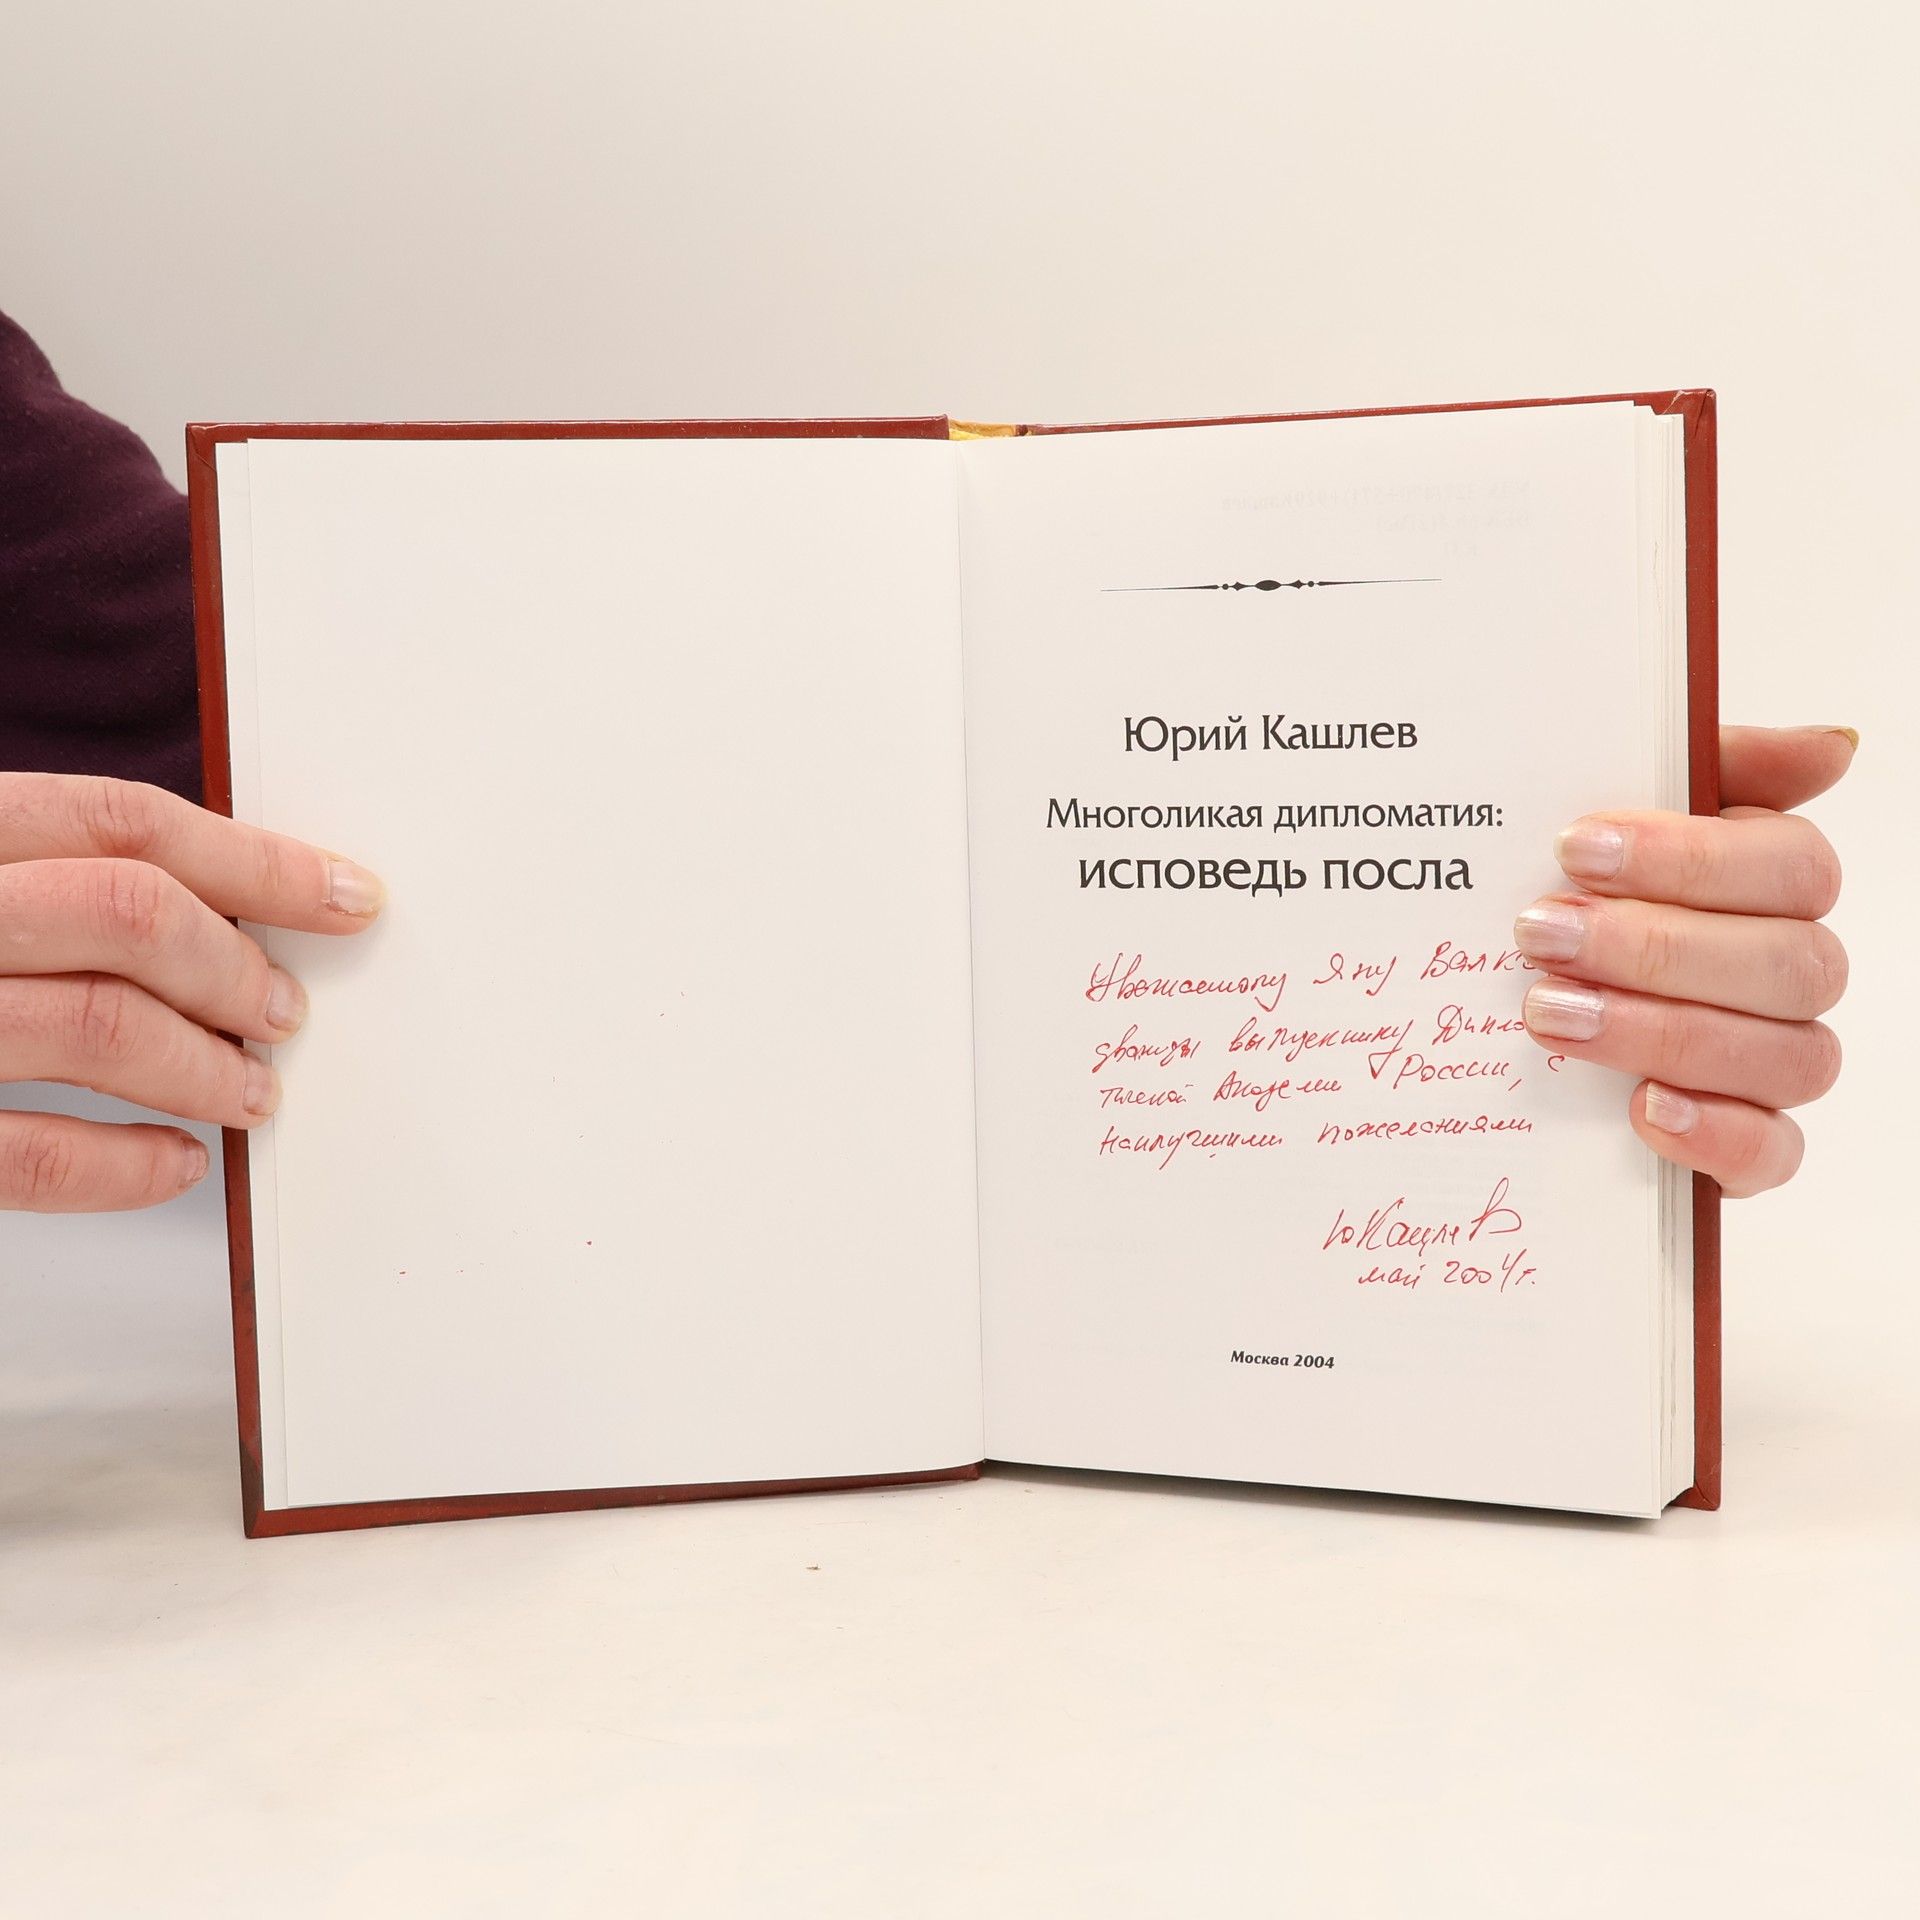 Юрий Кашлев
Многоликая дипломатия:
исповедь посла
Уважаемому Яну Валке
дважды выпускнику Дипло
тической Академии России, с
наилучшими пожеланиями
ЮКашлев
май 2004г.
Москва 2004